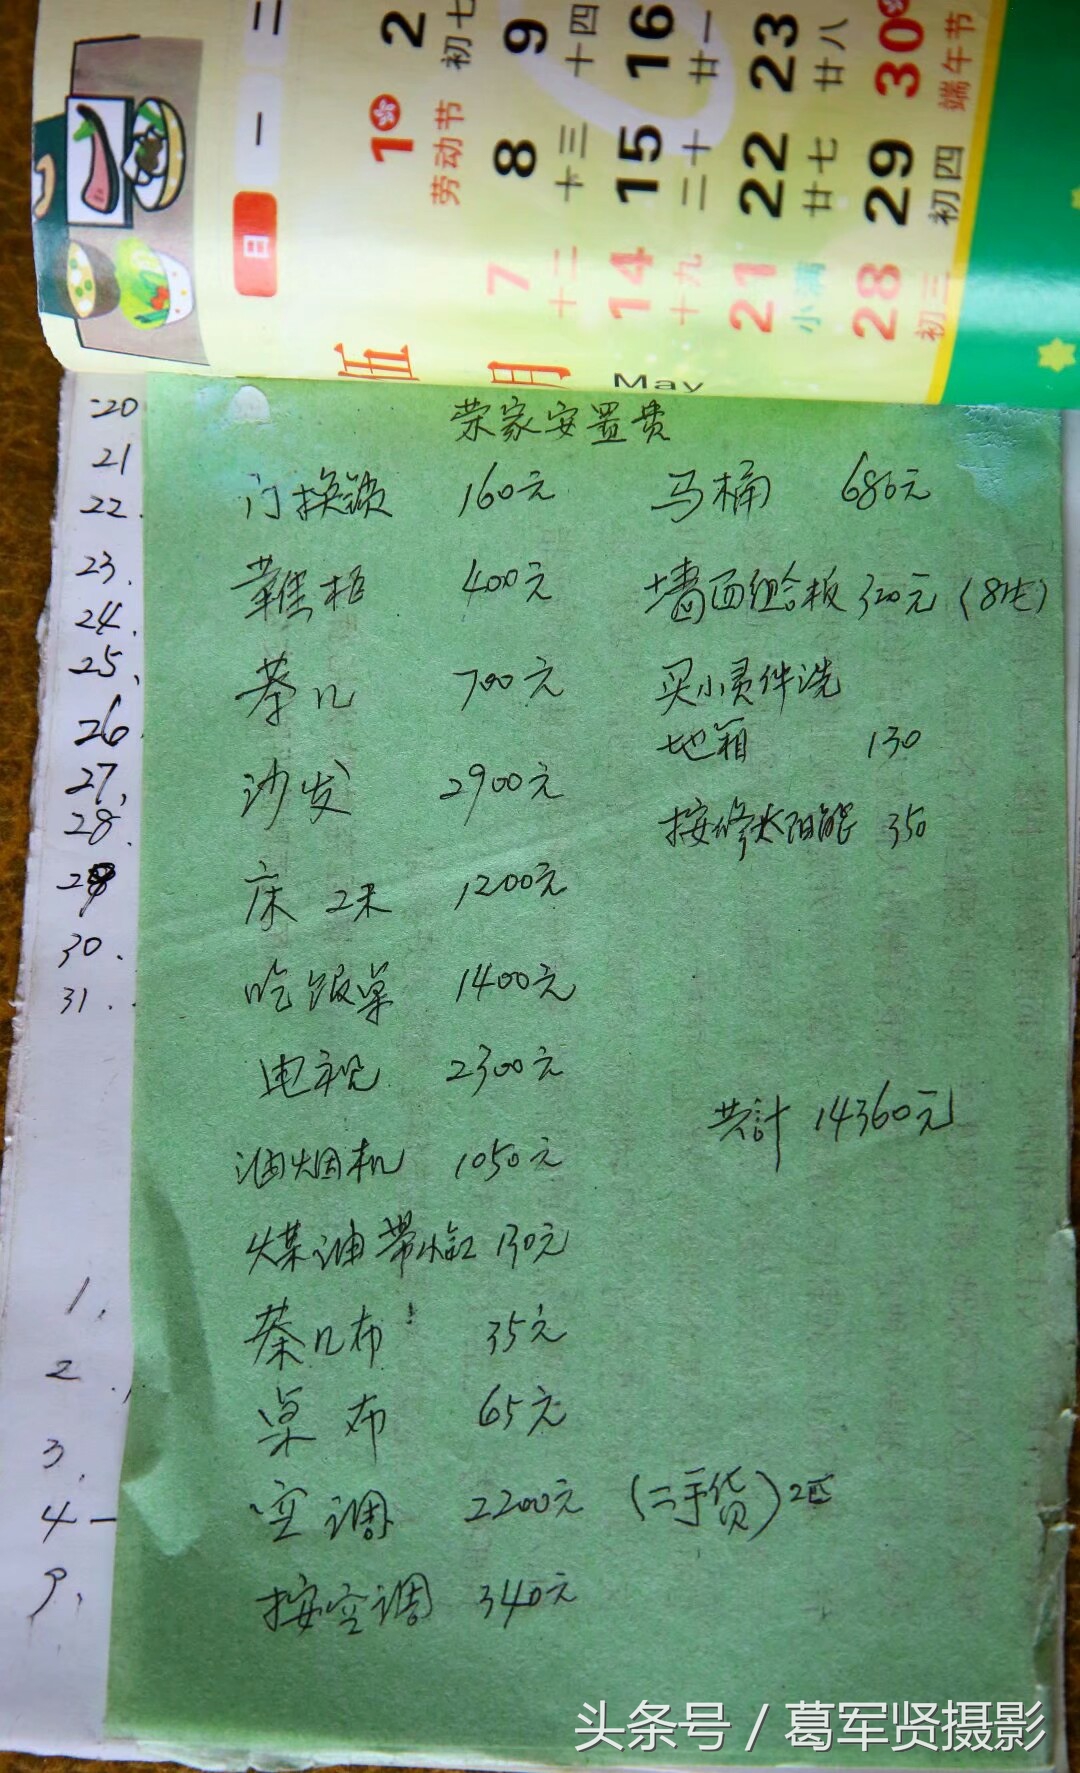 日 一 二
1 2
劳动节 初七
7 8 9
十二 十三 十四
14 15 16
十九 二十 廿一
21 22 23
小满 廿七 廿八
28 29 30
初三 初四 端午节
伍月 May
荣家安置费
20
21
22.
23.
24.
25.
26
27,
28.
29
30.
31.
1.
2.
3.
4-
门换锁 160元 马桶 680元
鞋柜 400元 墙面组合板 320元
茶几 700元 买小灵件洗
地箱 130
沙发 2900元 按修太阳能 350
床 2米 1200元
吃饭桌 1400元
电视 2300元
共計 14360元
油烟机 1050元
煤油带小缸 130元
茶几布 35元
桌布 65元
空调 2200元 (二手货) 2匹
按空调 340元
头条号 / 葛军贤摄影